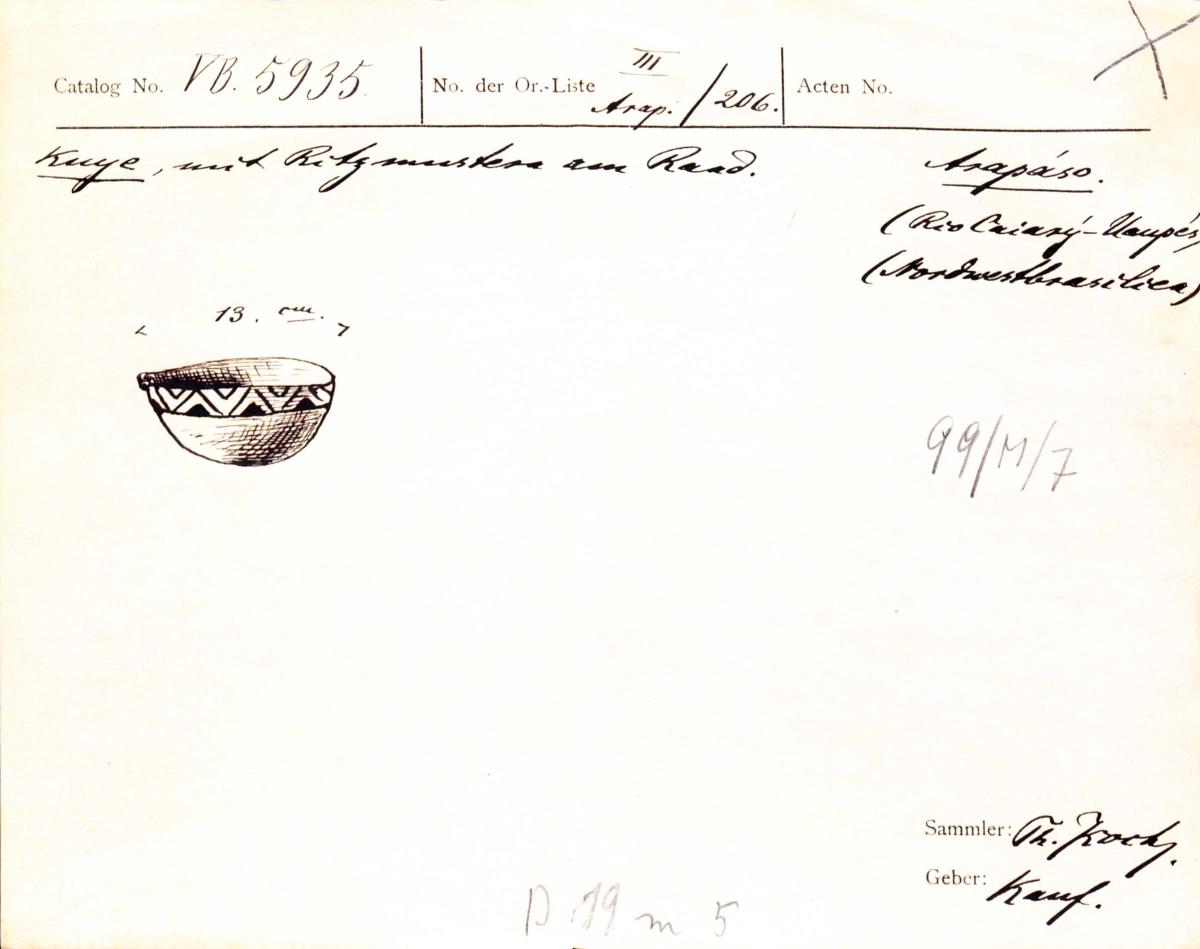 Catalog No. VB. 5935. No. der Or.-Liste III Arap. / 206. Acten No.
Kuye, mit Ritzmustern am Rand. Arapáso.
(Rio Caiarý-Uaupés,
(Nordwestbrasilien)
13. cm.
99/M/7
Sammler: Th. Koch.
Geber: Kauf.
D 19 m 5